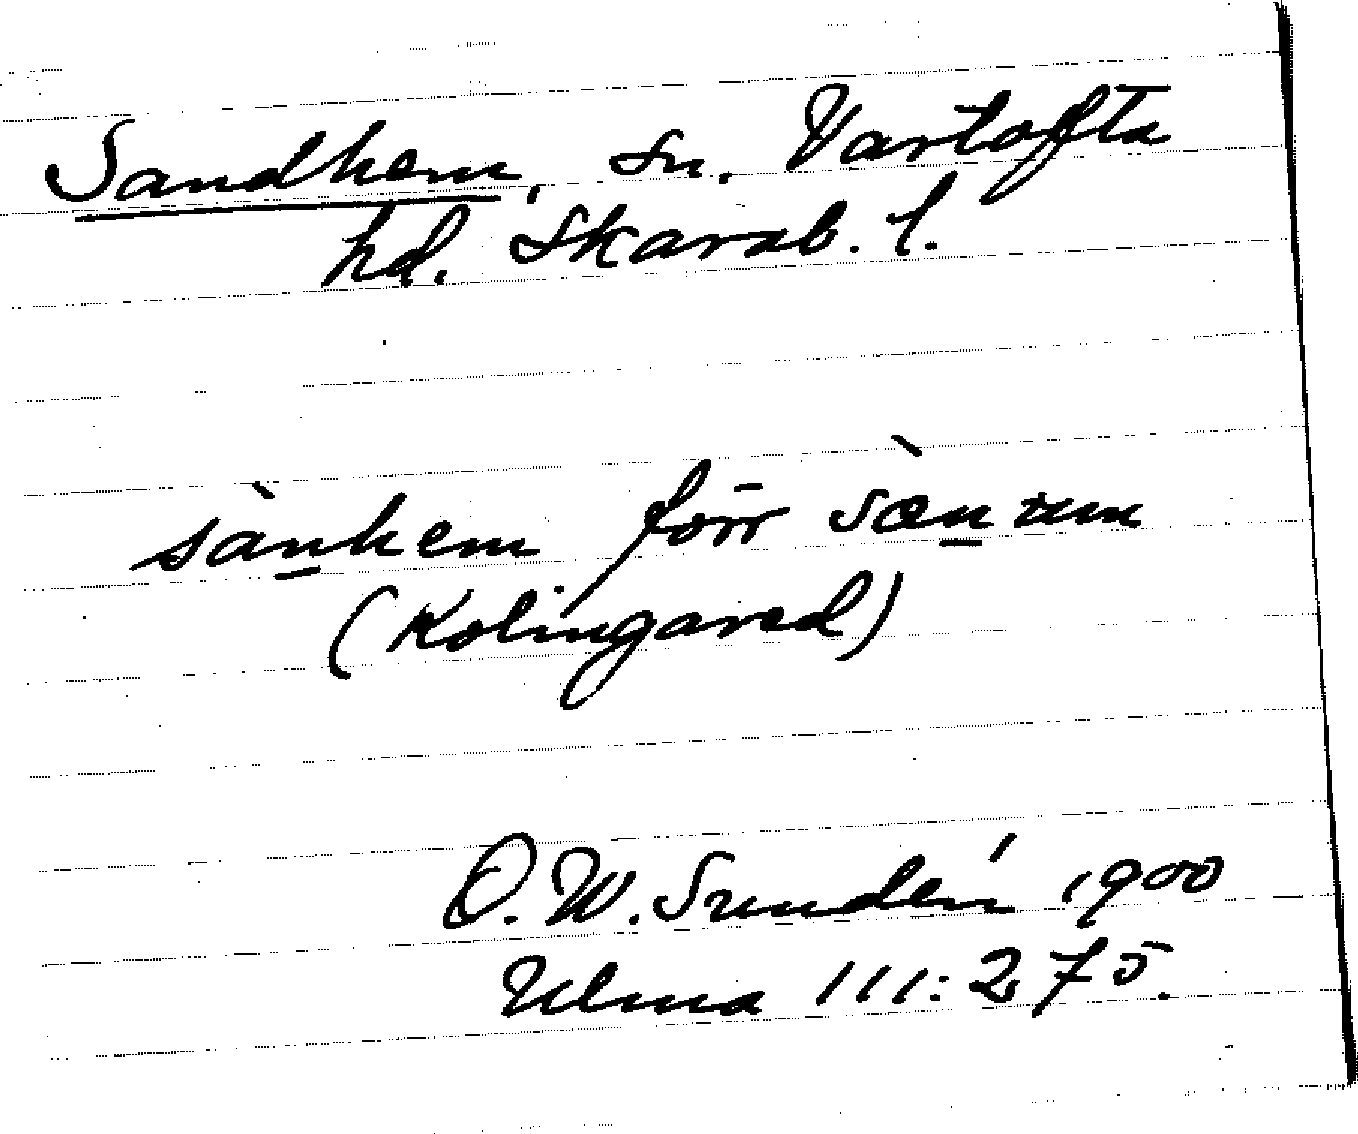 Sandhem, sn. Vartofta
hd. Skarab. l.
sànhem förr sæ̀num
(Kolingared)
O. W. Sundén 1900
Ulma 111:275.